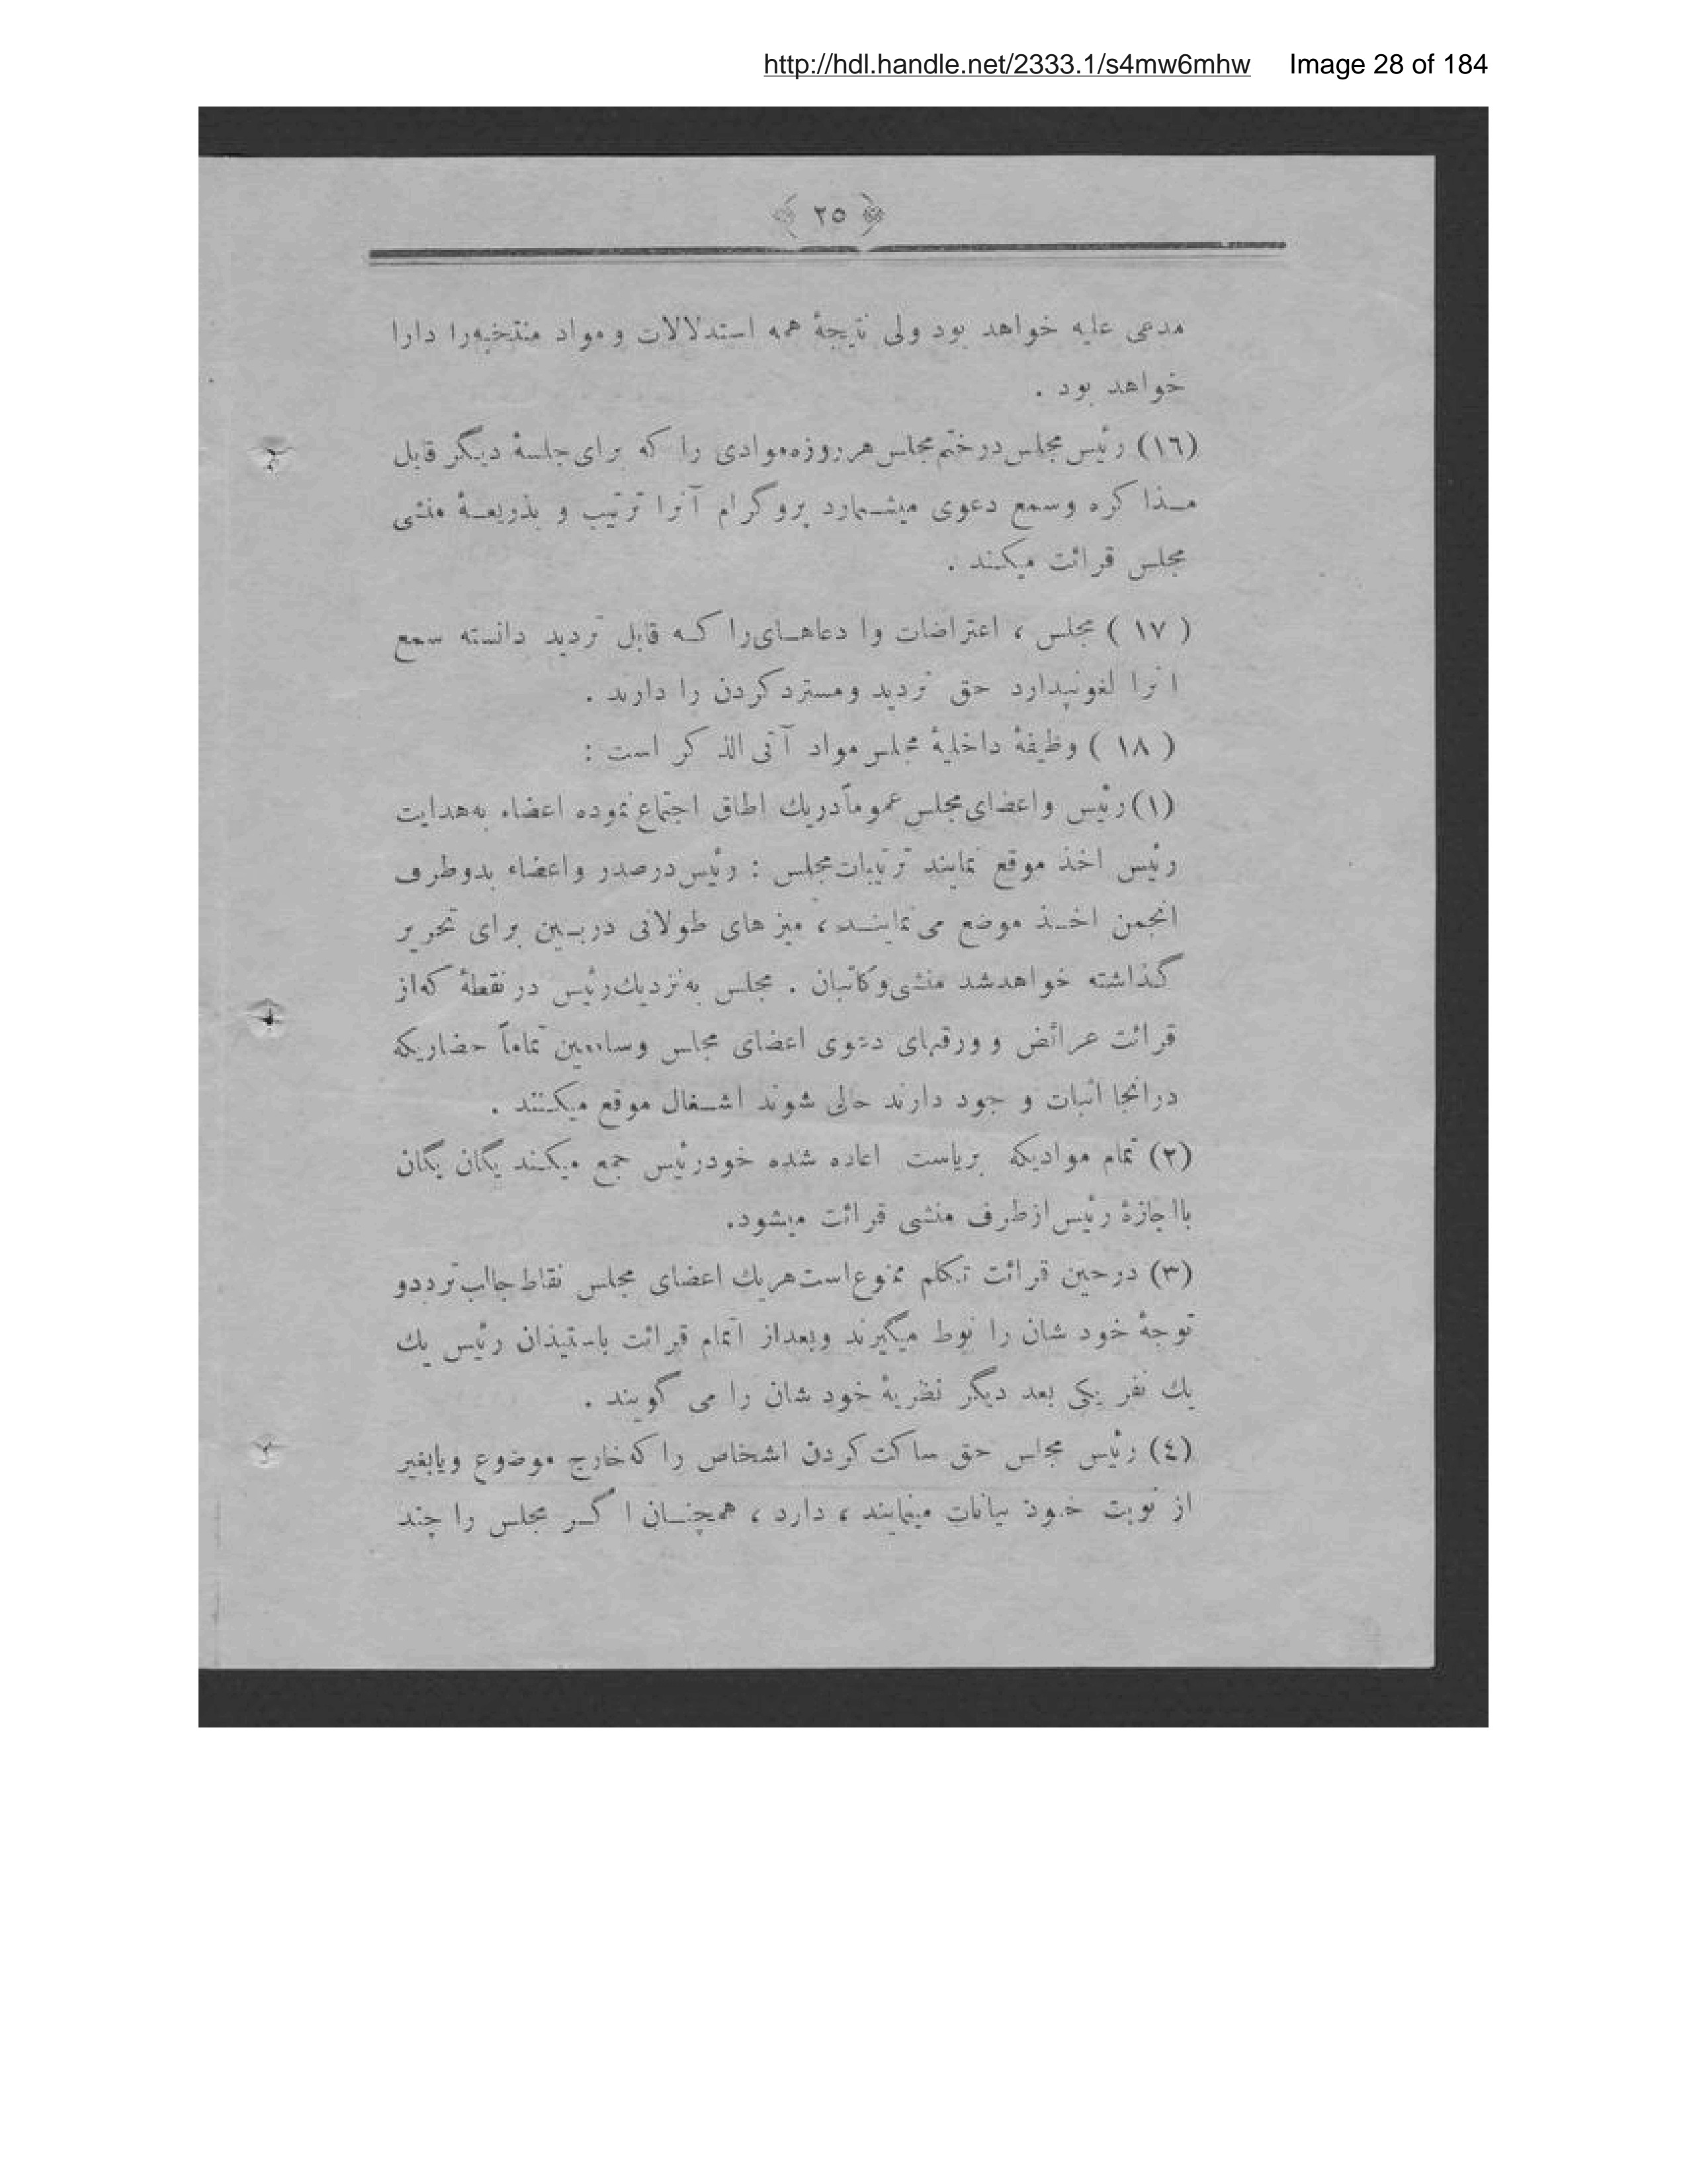 http://hdl.handle.net/2333.1/s4mw6mhw Image 28 of 184
﴿ ٢٥ ﴾
مدعی علیه خواهد بود ولی نتیجهٔ همه استدلالات و مواد منتخبه‌را دارا
خواهد بود .
(١٦) رئیس مجلس در ختم مجلس هر روزه موادی را که برای جلسهٔ دیگر قابل
مـذا کره وسمع دعوی میشـمارد پروگرام آنرا ترتیب و بذریعـهٔ منشی
مجلس قرائت میکند .
( ١٧ ) مجلس ، اعتراضات وا دعاهـای‌را کـه قابل تردید دانسته سمع
انرا لغو نپیدارد حق تردید ومسترد کردن را دارند .
( ١٨ ) وظیفهٔ داخلیهٔ مجلس مواد آتی الذ کر است :
(١) رئیس واعضای مجلس عموماً دریك اطاق اجتماع نموده اعضاء به هدایت
رئیس اخذ موقع نمایند ترتیبات مجلس : رئیس در صدر واعضاء بدوطرف
انجمن اخـذ موضع می نماینـد ، میز های طولانی در بـین برای تحریر
گذاشته خواهد شد منشی وکاتبان . مجلس به نزدیك رئیس در نقطهٔ که از
قرائت عرائض و ورقهای دعوی اعضای مجلس وسامعین تماماً حضاریکه
درانجا اثبات و جود دارند حالی شوند اشـغال موقع میکـنند .
(٢) تمام موادیکه بریاست اعاده شده خود رئیس جمع میکـند یگان یگان
بااجازهٔ رئیس از طرف منشی قرائت میشود.
(٣) در حین قرائت تکلم ممنوع است هریك اعضای مجلس نقاط جالب تردد و
توجهٔ خود شان را نوط میگیرند وبعد از اتمام قرائت باستیذان رئیس یك
یك نفر یکی بعد دیگر نظریهٔ خود شان را می گویند .
(٤) رئیس مجلس حق ساکت کردن اشخاص را که خارج موضوع ویابغیر
از نوبت خود بیانات مینمایند ، دارد ، همچنـان ا گـر مجلس را چند